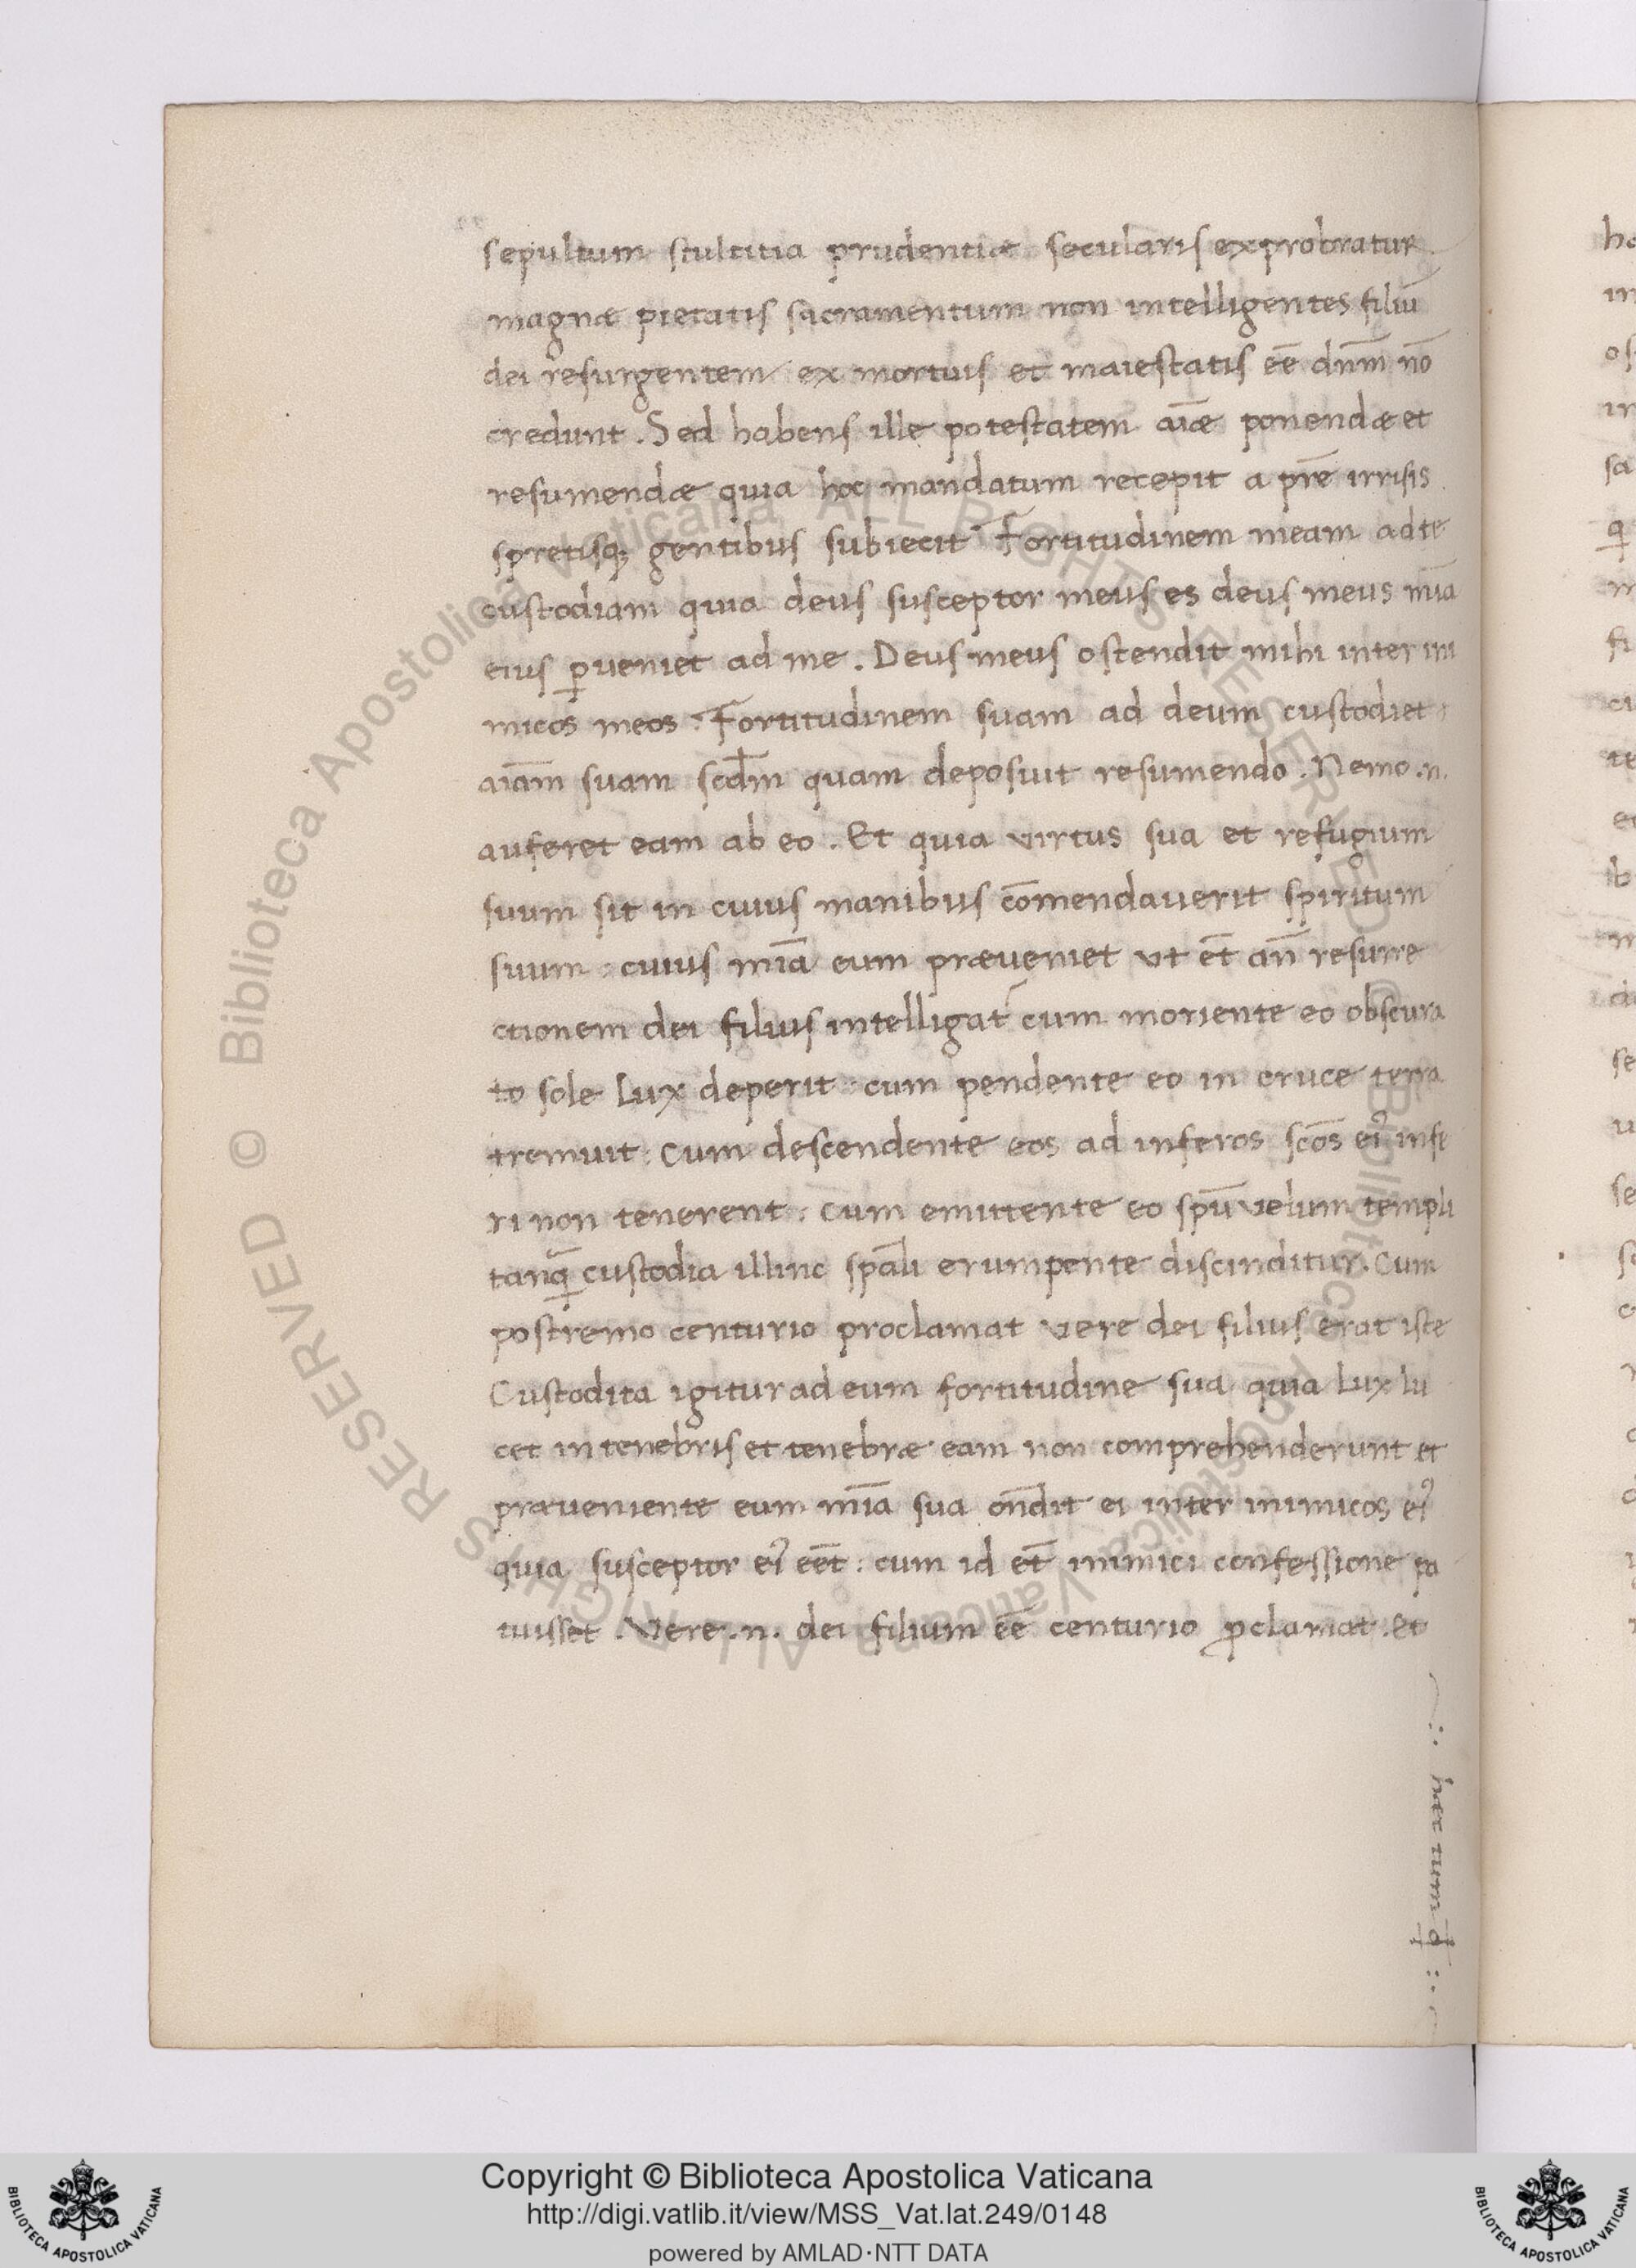 sepultum stultitia prudentiæ secularis exprobratur
magnæ pietatis sacramentum non intelligentes filiū
dei resurgentem ex mortuis et maiestatis eē dnm̄ nō
credunt. Sed habens ille potestatem aīæ ponendæ et
resumendæ quia hoc mandatum recepit a pr̄e irrisis
spretisq; gentibus subiecit Fortitudinem meam ad te
custodiam quia deus susceptor meus es deus meus mīa
eius ꝑueniet ad me. Deus meus ostendit mihi inter ini
micos meos. Fortitudinem suam ad deum custodiet
aīam suam scdm̄ quam deposuit resumendo. Nemo .n.
auferet eam ab eo. Et quia virtus sua et refugium
suum sit in cuius manibus cōmendauerit spiritum
suum : cuius mīa eum præueniet vt et̄ an̄ resurre
ctionem dei filius intelligat᷑ cum moriente eo obscura
to sole Lux deperit : cum pendente eo in cruce terra
tremuit : Cum descendente eos ad inferos scōs eiꝰ infe
ri non tenerent : Cum emittente eo spū velum templi
tanꝙ̄ custodia illinc spāli erumpente discinditur. Cum
postremo centurio proclamat vere dei filius erat iste
Custodita igitur ad eum fortitudine sua quia Lux lu
cet in tenebris et tenebræ eam non comprehenderunt et
præueniente eum mīa sua on̄dit ei inter inimicos eiꝰ
quia susceptor eiꝰ eēt : cum id et̄ inimici confessione pa
tuisset. Vere .n. dei filium eē centurio ꝓclamat. et
her tum
Copyright © Biblioteca Apostolica Vaticana
http://digi.vatlib.it/view/MSS_Vat.lat.249/0148
powered by AMLAD·NTT DATA
BIBLIOTECA APOSTOLICA VATICANA
BIBLIOTECA APOSTOLICA VATICANA
© Biblioteca Apostolica Vaticana ALL RIGHTS RESERVED © Biblioteca Apostolica Vaticana ALL RIGHTS RESERVED